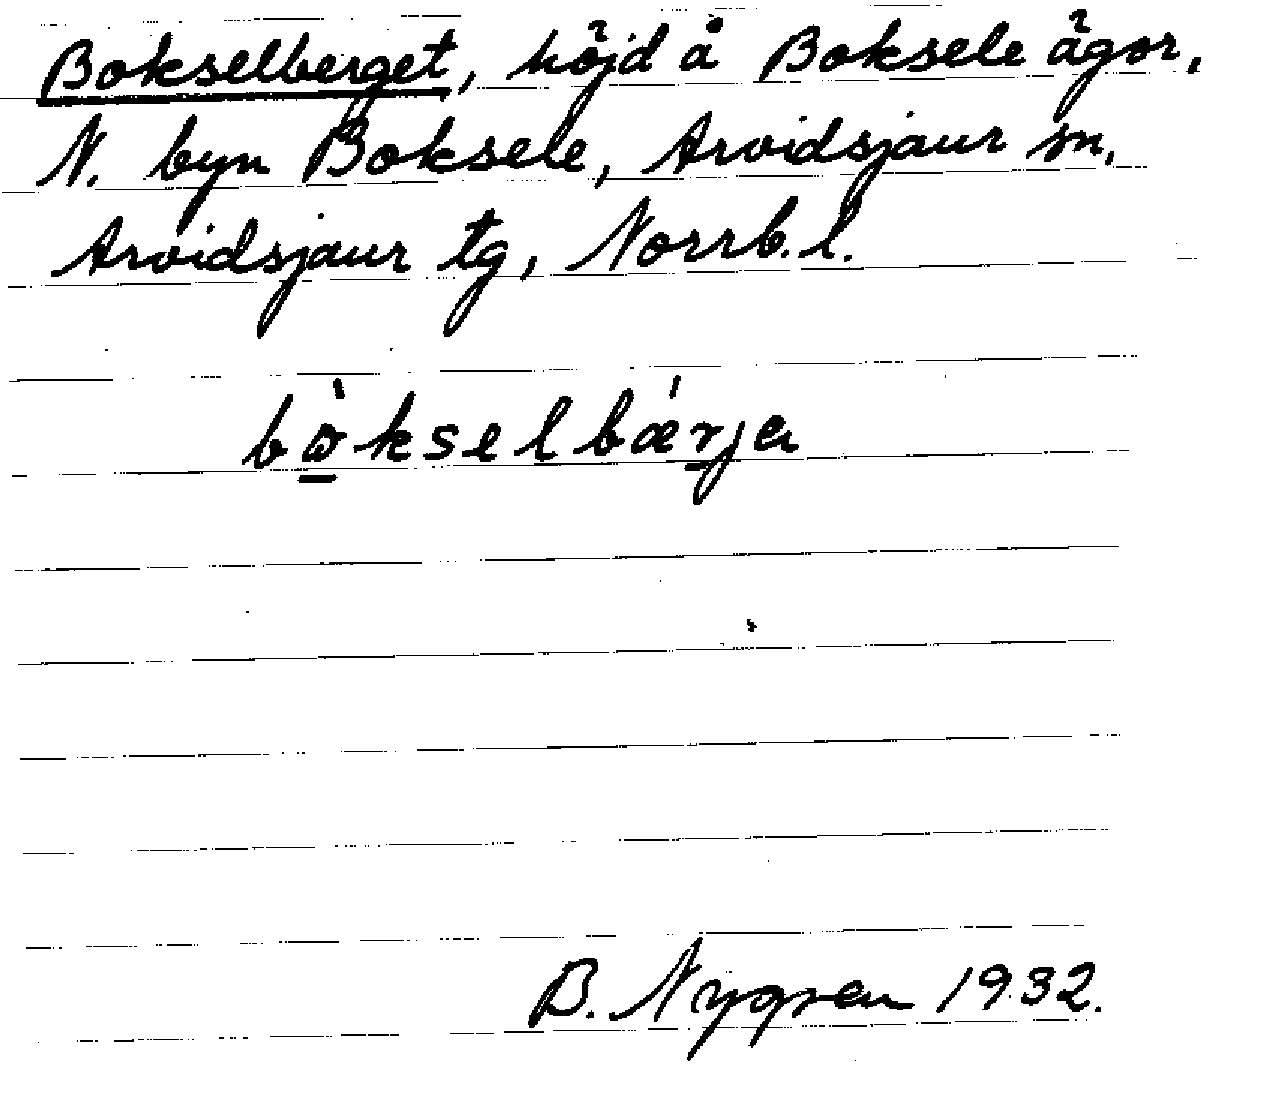 Bokselberget, höjd å Boksele ägor,
N. byn Boksele, Arvidsjaur sn,
Arvidsjaur tg, Norrb. l.
bò̱kselbǽṟja
B. Nygren 1932.